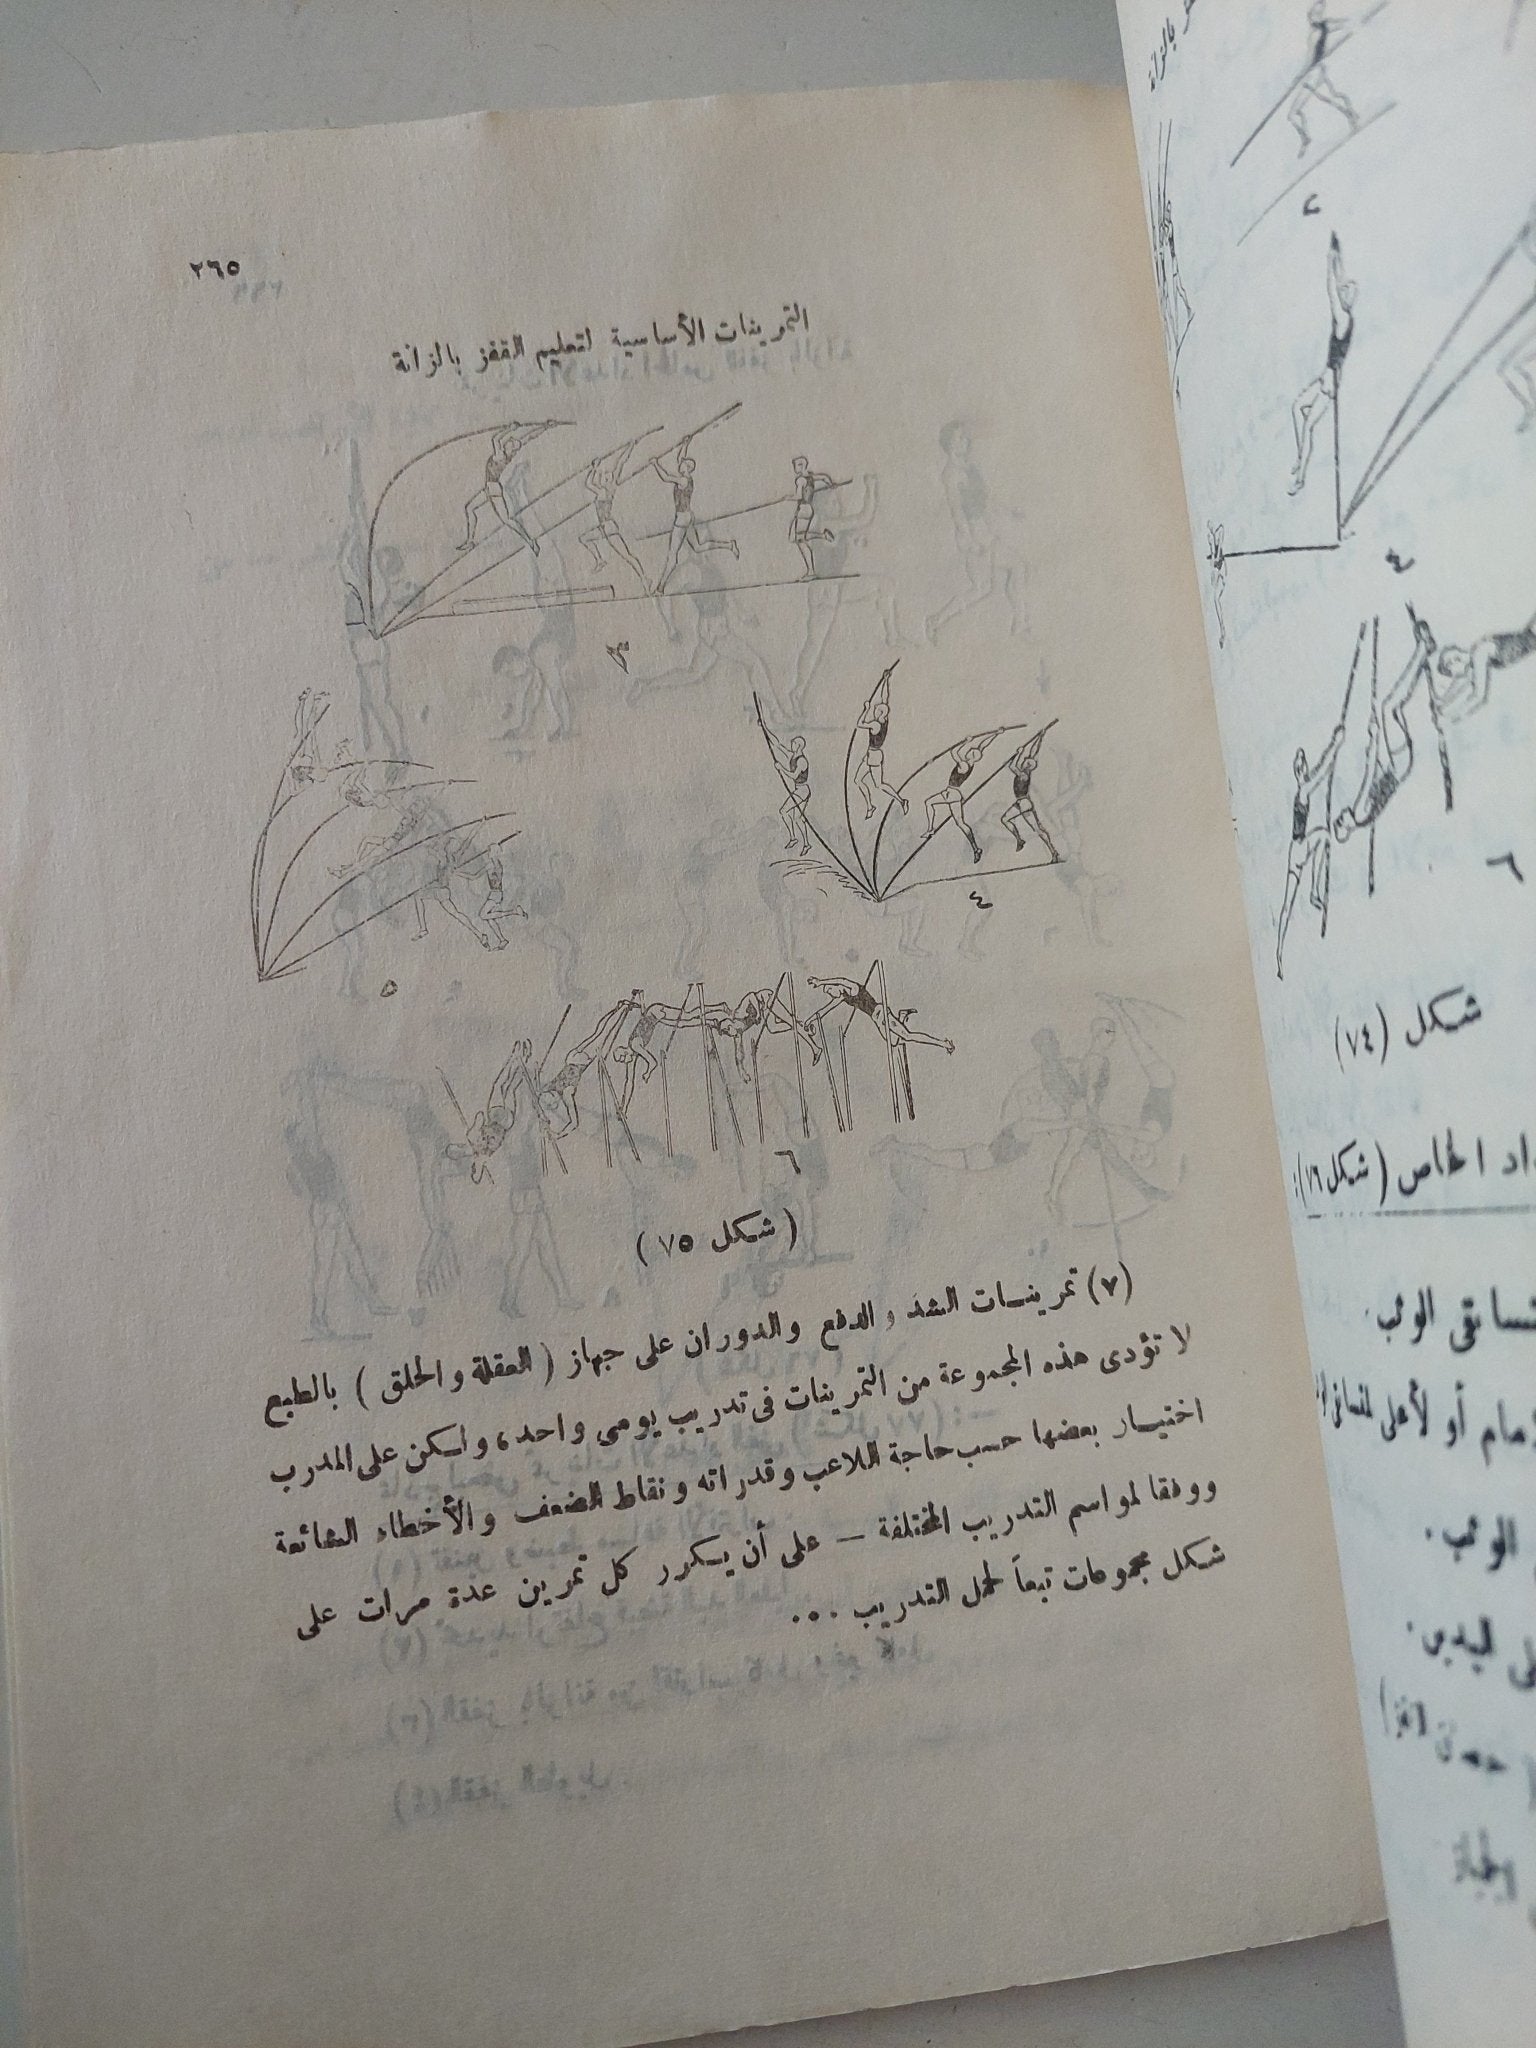 ٢٦٥
التمرينات الأساسية لتعليم القفز بالزانة
٣
٤
٥
٦
(شكل ٧٥)
(٧) تمرينات الشد والدفع والدوران على جهاز (العقلة والحلق) بالطبع
لا تؤدى هذه المجموعة من التمرينات فى تدريب يومى واحد، ولكن على المدرب
اختيار بعضها حسب حاجة اللاعب وقدراته ونقاط الضعف والأخطاء الشائعة
ووفقا لمواسم التدريب المختلفة — على أن يكرر كل تمرين عدة مرات على
شكل مجموعات تبعاً لحمل التدريب ...
بالزانة
٢
٤
٦
شكل (٧٤)
الخاص (شكل ٧٦):
الوثب.
أو لأعلى
الوثب.
اليدين.